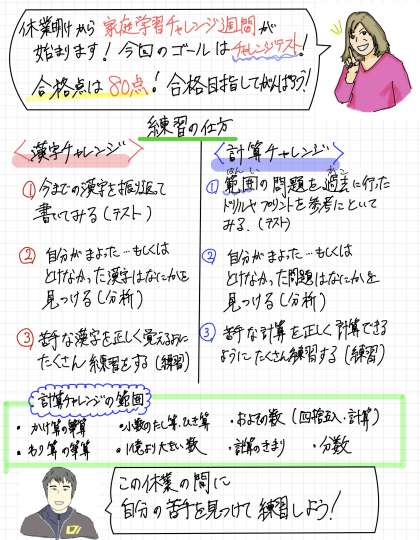 休業明けから 家庭学習チャレンジ週間が
始まります！今回のゴールはチャレンジテスト！
合格点は80点！合格目指してがんばろう！
練習の仕方
〈漢字チャレンジ〉
① 今までの漢字を振り返って
書いてみる（テスト）
② 自分がまよった…もしくは
とけなかった漢字はなにかを
見つける（分析）
③ 苦手な漢字を正しく覚えるように
たくさん練習をする（練習）
〈計算チャレンジ〉
はんい かこ
① 範囲の問題を過去に行った
ドリルやプリントを参考にといて
みる.（テスト）
② 自分がまよった…もしくは
とけなかった問題はなにかを
見つける（分析）
③ 苦手な計算を正しく計算できる
ようにたくさん練習する（練習）
計算チャレンジの範囲
・かけ算の筆算 ・小数のたし算、ひき算 ・およその数（四捨五入・計算）
・わり算の筆算 ・1億より大きい数 ・計算のきまり ・分数
この休業の間に
自分の苦手を見つけて練習しよう！